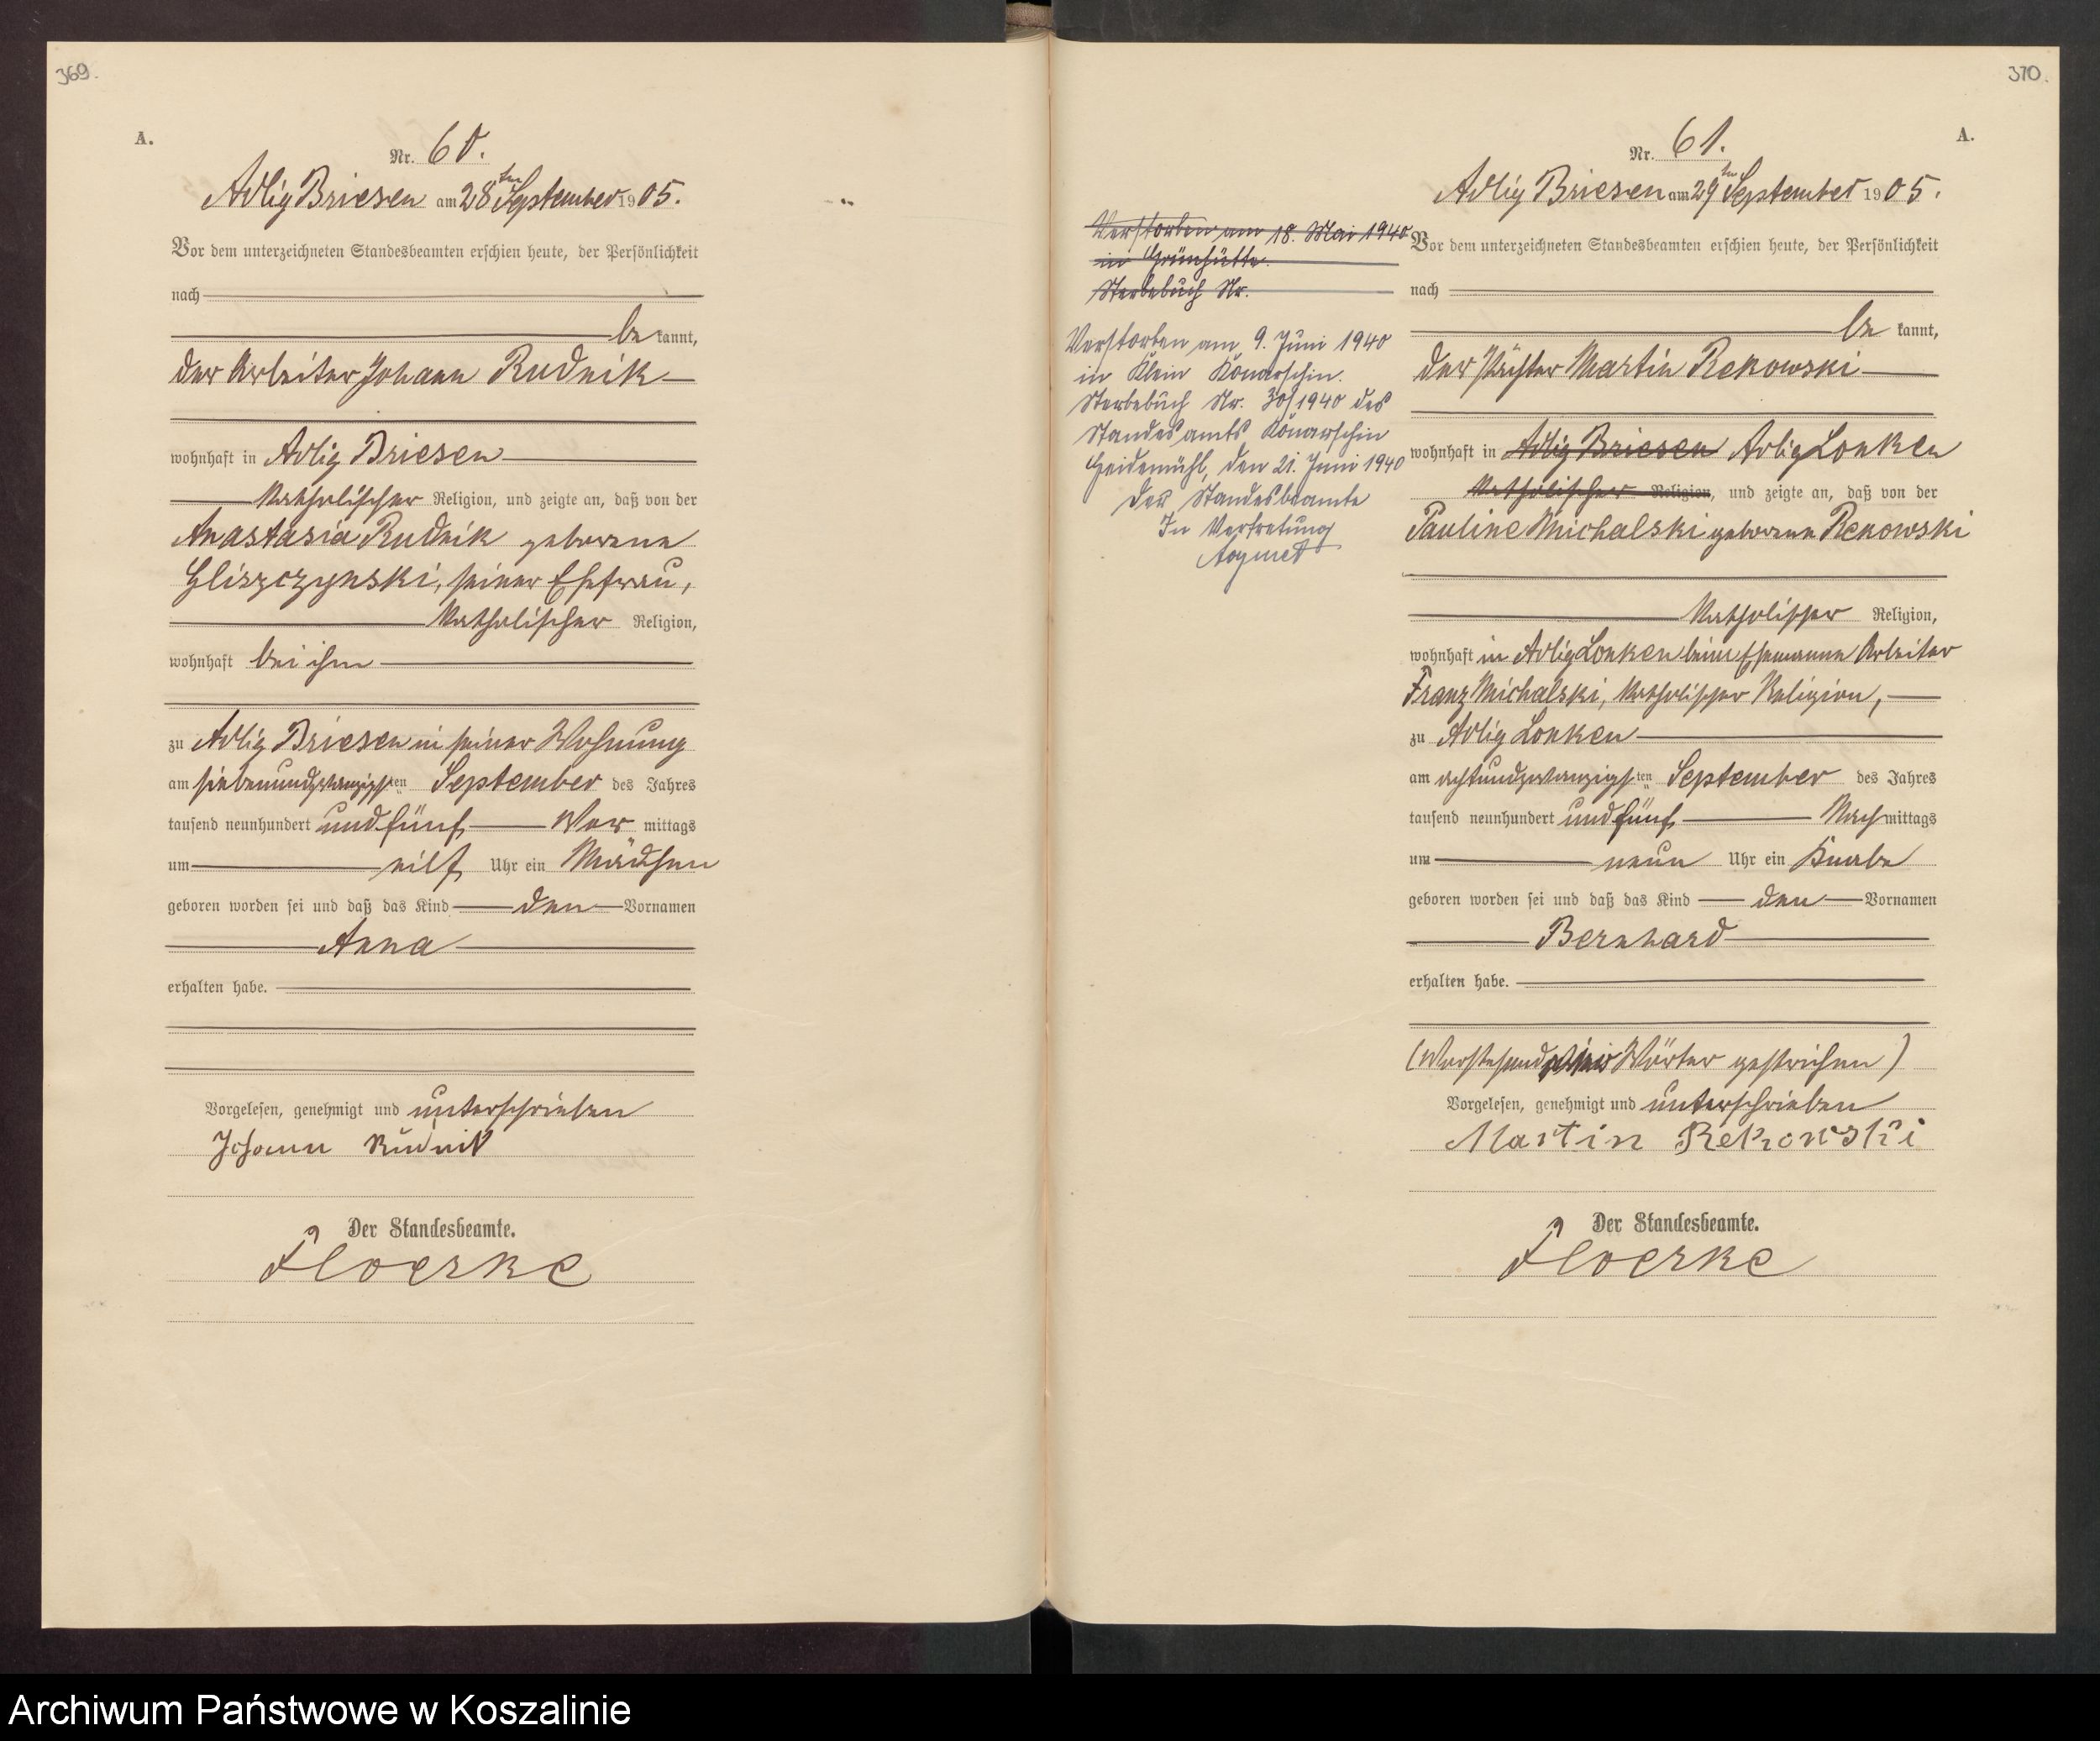 369.
A.
Nr. 60.
Adlig Briesen am 28ten September 1905.
Vor dem unterzeichneten Standesbeamten erschien heute, der Persönlichkeit
nach
be kannt,
der Arbeiter Johann Rudnik
wohnhaft in Adlig Briesen
katholischer Religion, und zeigte an, daß von der
Anastasia Rudnik geborene
Gliszczynski, seiner Ehefrau,
katholischer Religion,
wohnhaft bei ihm
zu Adlig Briesen in seiner Wohnung
am siebenundzwanzigsten September des Jahres
tausend neunhundert und fünf Vor mittags
um eilf Uhr ein Mädchen
geboren worden sei und daß das Kind den Vornamen
Anna
erhalten habe.
Vorgelesen, genehmigt und unterschrieben
Johann Rudnik
Der Standesbeamte.
Floerke
370.
A.
Nr. 61.
Adlig Briesen am 29ten September 1905.
Verstorben am 18. Mai 1940
in Grünhütte.
Sterbebuch Nr.
Verstorben am 9. Juni 1940
in Klein Konarschin.
Sterbebuch Nr. 30/1940 des
Standesamts Konarschin
Heidemühl, den 21. Juni 1940
Der Standesbeamte
In Vertretung
Vor dem unterzeichneten Standesbeamten erschien heute, der Persönlichkeit
nach
be kannt,
der Pächter Martin Rekowski
wohnhaft in Adlig Briesen Adlig Lonken
katholischer Religion, und zeigte an, daß von der
Pauline Michalski geborene Rekowski
katholischer Religion,
wohnhaft in Adlig Lonken beim Ehemanne Arbeiter
Franz Michalski, katholischer Religion,
zu Adlig Lonken
am achtundzwanzigsten September des Jahres
tausend neunhundert und fünf Nach mittags
um neun Uhr ein Knabe
geboren worden sei und daß das Kind den Vornamen
Bernhard
erhalten habe.
(Vorstehend Wörter gestrichen)
Vorgelesen, genehmigt und unterschrieben
Martin Rekowski
Der Standesbeamte.
Floerke
Archiwum Państwowe w Koszalinie